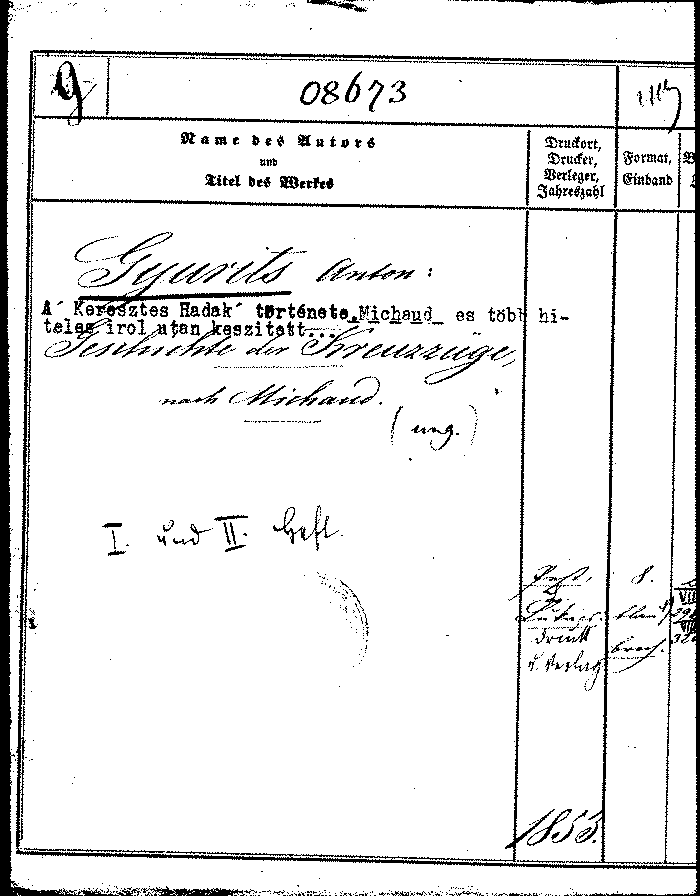 g
08673
Name des Autors
und
Titel des Werkes
Druckort,
Drucker,
Verleger,
Jahreszahl
Format,
Einband
Gyurits Anton:
A´ Keresztes Hadak´ története. Michaud es több hi-
teles irol utan keszitett...
Geschichte der Kreuzzüge,
nach Michaud.
(ung.)
I. und II. Heft.
Pest,
8.
druck
u. Verlag
broch.
1853.